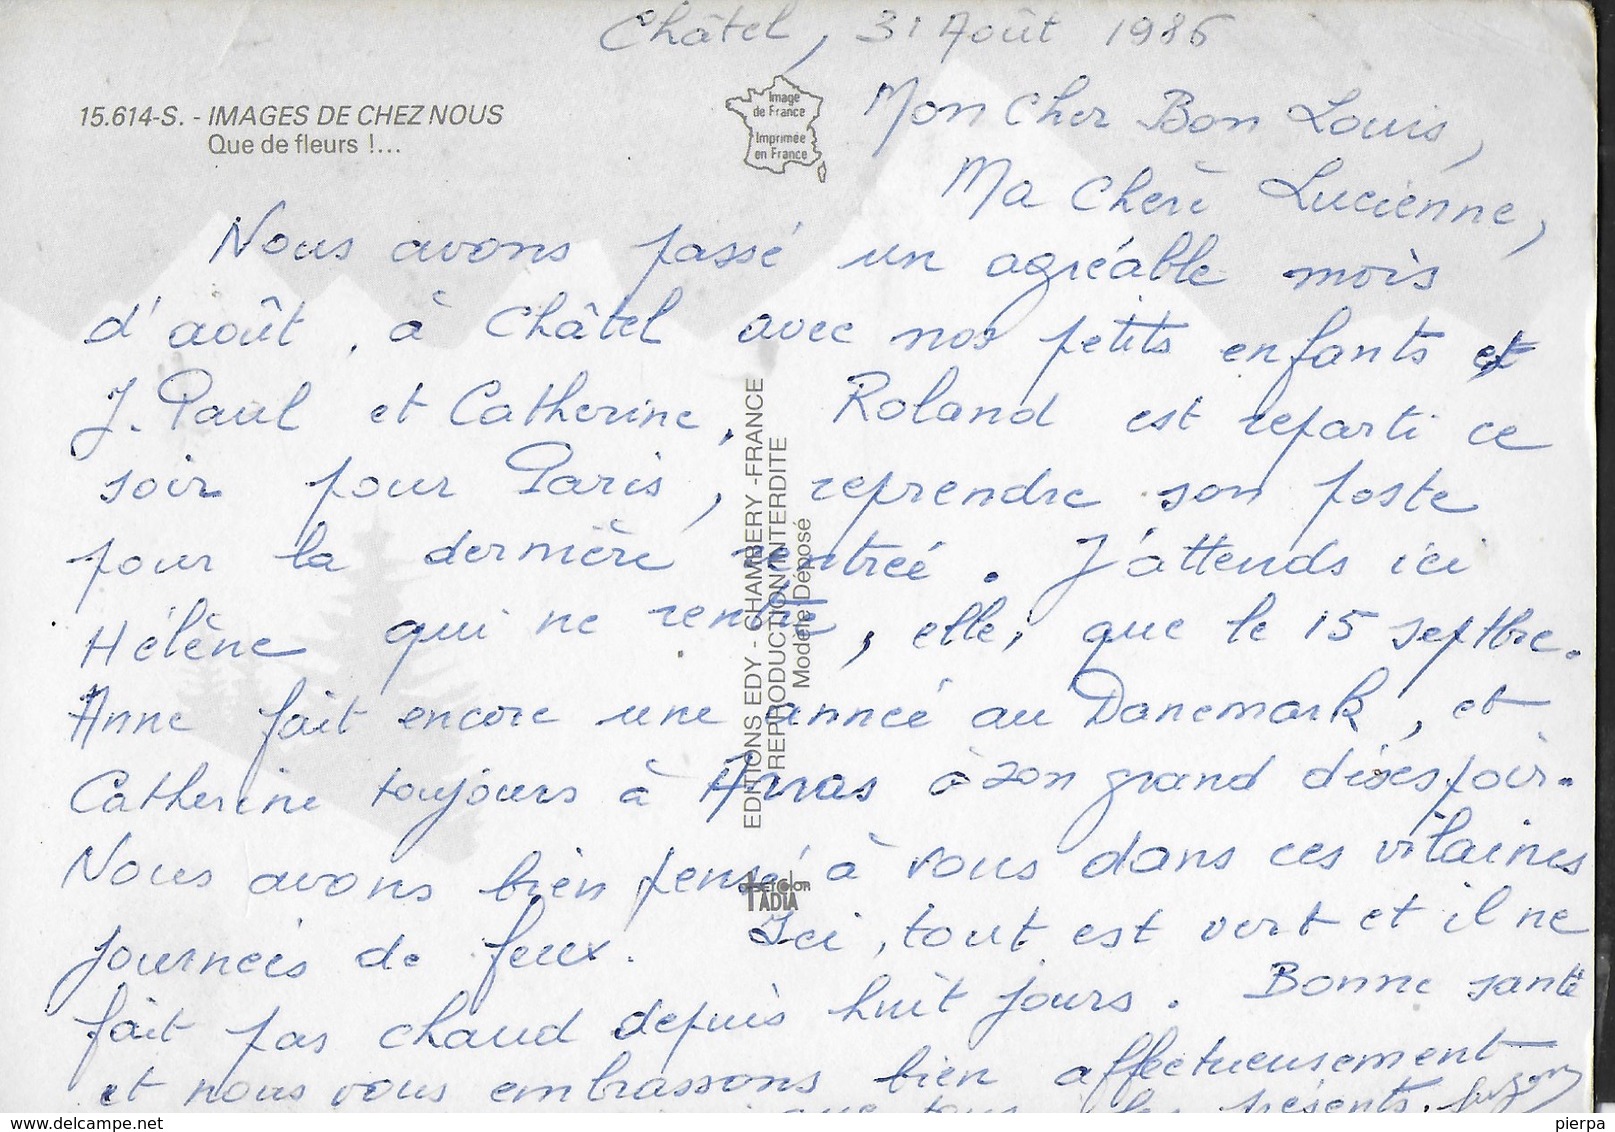 Châtel, 31 Août 1986
15.614-S. - IMAGES DE CHEZ NOUS
Que de fleurs !...
Image
de France
Imprimée
en France
Mon Cher Bon Louis,
Ma Chère Lucienne,
Nous avons passé un agréable mois
d'août, à Châtel avec nos petits enfants et
J. Paul et Catherine. Roland est reparti ce
soir pour Paris, reprendre son poste
pour la dernière rentrée. J'attends ici
Hélène qui ne rentre, elle, que le 15 septbre.
Anne fait encore une année au Danemark, et
Catherine toujours à Arras à son grand désespoir.
Nous avons bien pensé à vous dans ces vilaines
journées de feux. Ici, tout est vert et il ne
fait pas chaud depuis huit jours. Bonne santé
et nous vous embrassons bien affectueusement
que tous les présents. Suzon
EDITIONS EDY - CHAMBERY - FRANCE
REPRODUCTION INTERDITE
Modèle Déposé
ADIA
pierpa
www.delcampe.net